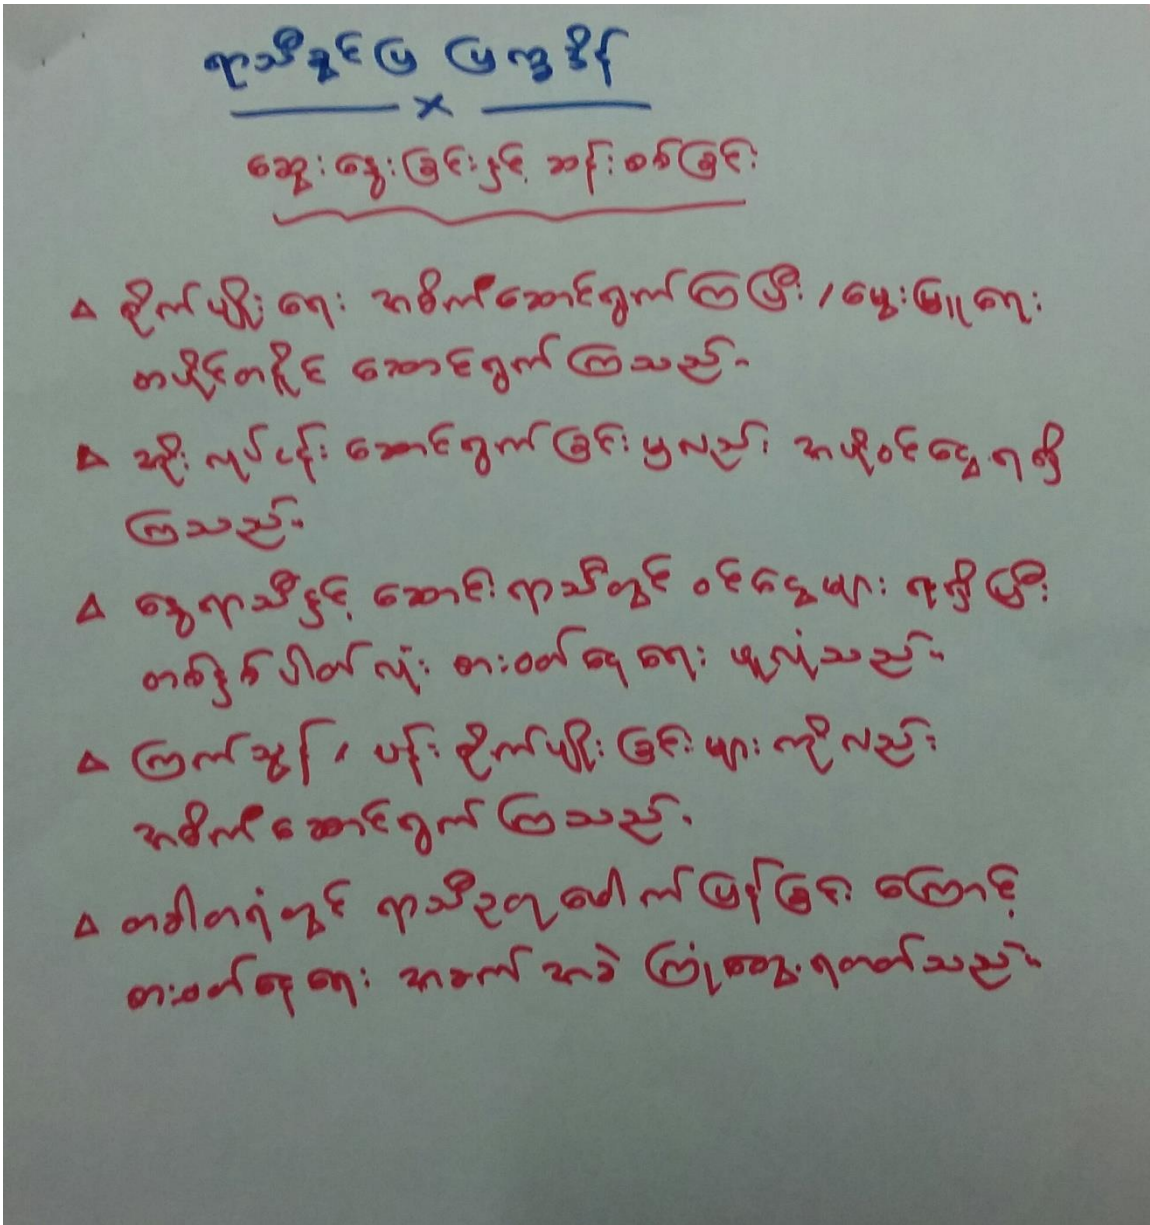 ရာသီခွင်ပြ ပြက္ခဒိန်
ဆွေးနွေးခြင်းနှင့် ဆန်းစစ်ခြင်း
△ စိုက်ပျိုးရေး အဓိကဆောင်ရွက်ကြပြီး ၊ မွေးမြူရေး
တပိုင်တနိုင် ဆောင်ရွက်ကြသည်။
△ အိုးလုပ်ငန်း ဆောင်ရွက်ခြင်းမှလည်း အပိုဝင်ငွေရရှိ
ကြသည်။
△ နွေရာသီနှင့် ဆောင်းရာသီတွင် ဝင်ငွေများ ရရှိပြီး
တစ်နှစ်ပါတ်လုံး စားဝတ်နေရေး မျှလုံသည်။
△ ကြက်သွန် ၊ ပန်း စိုက်ပျိုးခြင်းများကိုလည်း
အဓိကဆောင်ရွက်ကြသည်။
△ တခါတရံတွင် ရာသီဥတုဖေါက်ပြန်ခြင်းကြောင့်
စားဝတ်နေရေး အခက်အခဲ ကြုံတွေ့ရတတ်သည်။